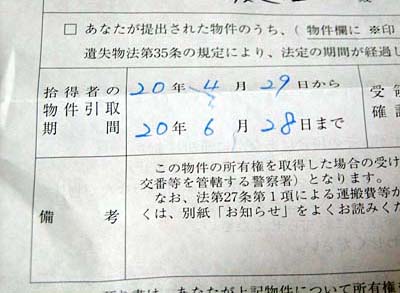 □ あなたが提出された物件のうち、(物件欄に※印
遺失物法第35条の規定により、法定の期間が経過し
拾得者の
物件引取
期間
20年4月29日から
20年6月28日まで
受領
確認
この物件の所有権を取得した場合の受け
交番等を管轄する警察署)となります。
なお、法第27条第1項による運搬費等か
くは、別紙「お知らせ」をよくお読みくだ
備考
あなたが上記物件について所有権を